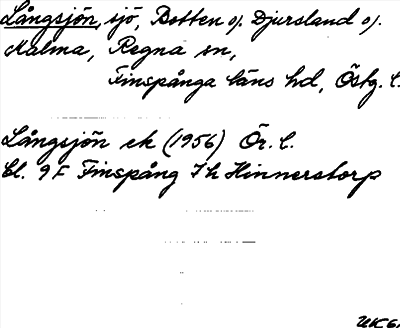 Långsjön, sjö, Botten o/. Djursland o/.
Malma, Regna sn,
Finspånga läns hd, Östg. l.
Långsjön ek (1956) Ör. l.
Bl. 9F Finspång 7h Hinnerstorp